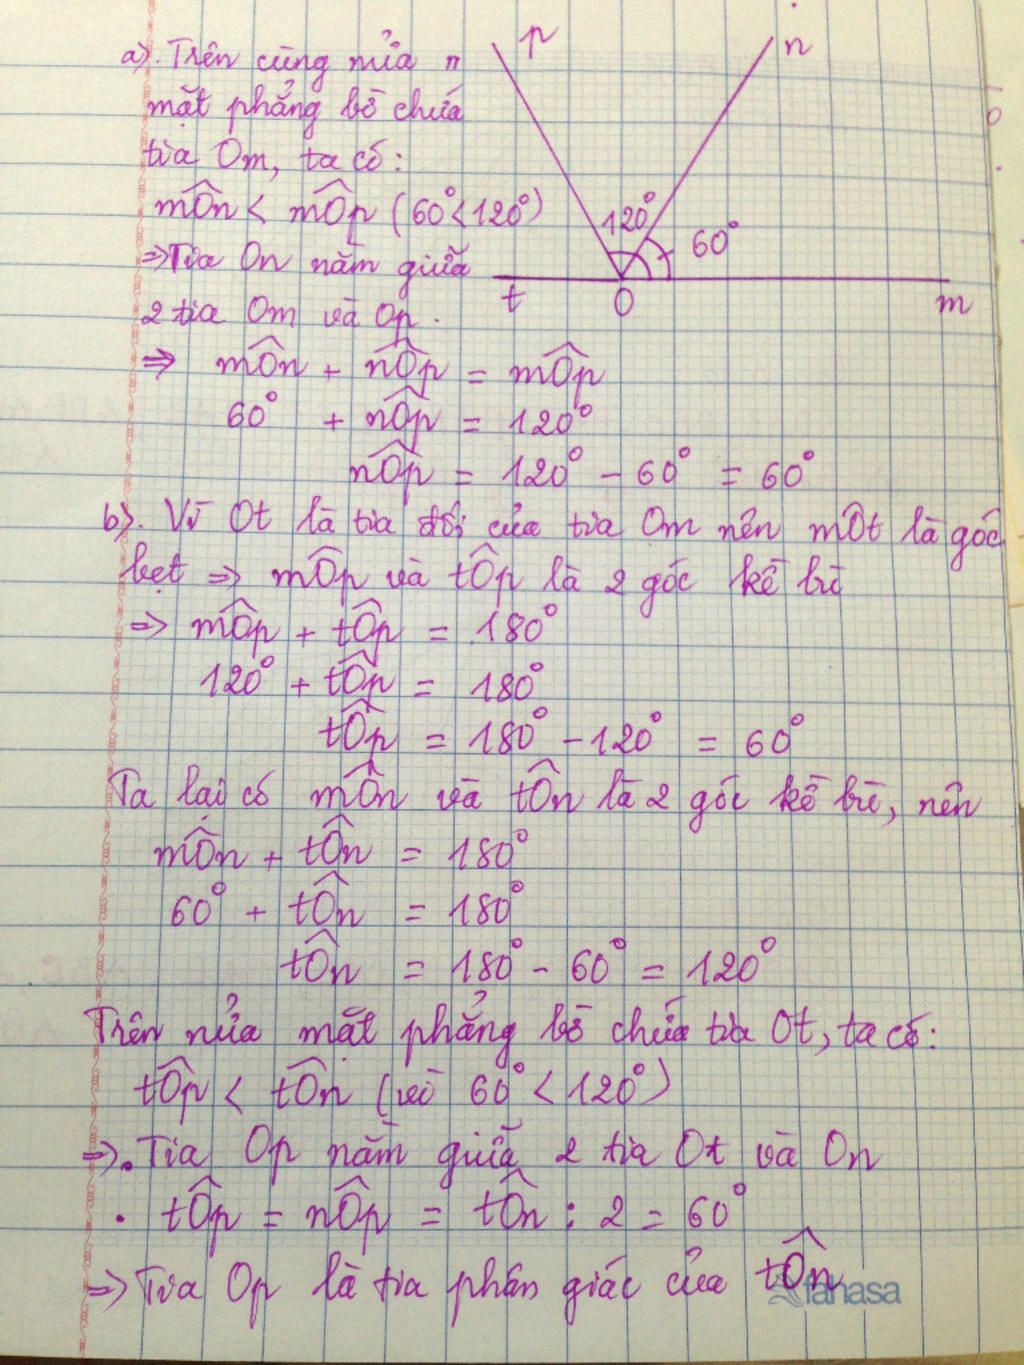 a). Trên cùng nửa n
mặt phẳng bờ chứa
tia Om, ta có:
mÔn < mÔp (60° < 120°)
=> Tia On nằm giữa
2 tia Om và Op.
p
n
120°
60°
t
O
m
=> mÔn + nÔp = mÔp
60° + nÔp = 120°
nÔp = 120° - 60° = 60°
b). Vì Ot là tia đối của tia Om nên mÔt là góc
bẹt => mÔp và tÔp là 2 góc kề bù
=> mÔp + tÔp = 180°
120° + tÔp = 180°
tÔp = 180° - 120° = 60°
Ta lại có mÔn và tÔn là 2 góc kề bù, nên
mÔn + tÔn = 180°
60° + tÔn = 180°
tÔn = 180° - 60° = 120°
Trên nửa mặt phẳng bờ chứa tia Ot, ta có:
tÔp < tÔn ( 60° < 120°)
=> . Tia Op nằm giữa 2 tia Ot và On
. tÔp = nÔp = tÔn : 2 = 60°
=> Tia Op là tia phân giác của tÔn
fahasa